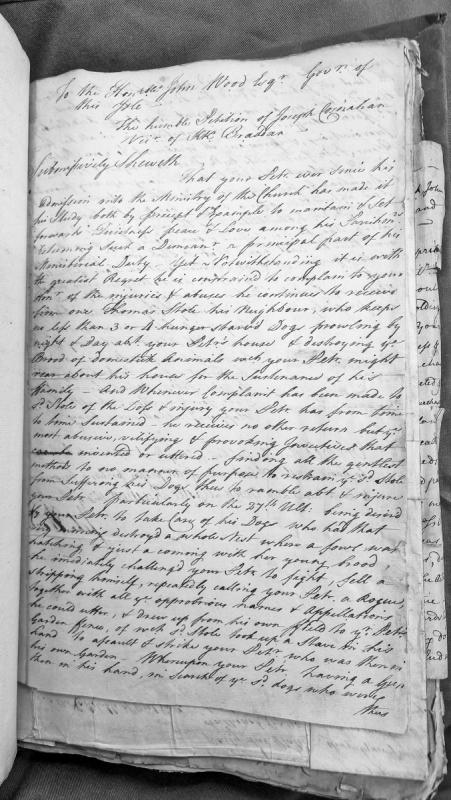 To the Honrble John Wood Esqr. Govr. of
this Isle
The humble Petition of Joseph Cosnahan
Vicr. of Kk. Braddan
Submissively Sheweth
That your Petr. ever since his
Admission into the Ministry of the Church has made it
his Study both by precept & Example to maintain & Set
forwards Quietness peace & Love among his Parishenrs
Esteeming Such a Demeanr. a principal part of his
Ministerial Duty Yet Notwithstanding it is with
the greatest Regret he is constrained to complain to your
Honr. of the injuries & abuses he continues to receive
from one Thomas Stole his Neighbour, who keeps
no less than 3 or 4 hunger starved Dogs prowling by
night & Day abt. your Petrs house & destroying ye.
Brood of domestick Animals wch your Petr. might
rear about his house for the Sustenance of his
Family – And Whenever Complaint has been made to
sd. Stole of the Loss & injury your Petr. has from time
to time Sustained – he receives no other return but ye.
most abusive, vilifying & provoking Invectives that
invented or uttered – finding all the gentlest
methods to no manner of purpose to restrain ye. sd. Stole
from Suffering his Dogs thus to ramble abt. & injure
your Petr. particularly on the 27th Ult. being desired
by your Petr. to take Care of his Dogs who had that
morning destroyd a whole Nest where a fowl was
hatching & just a coming with her young brood,
he imediately challeng'd your Petr. to fight, fell a
stripping himself, repeatedly calling your Petr. a Rogue,
together with all ye. opprobrious names & Appellations
he could utter, & drew up from his own field to ye. Petrs
Garden fence, of wch sd. Stole took up a Stave in his
hand to assault & strike your Petr who was then in
his own Garden. Whereupon your Petr. having a Gun
then in his hand, in Search of ye. sd dogs who were
thus